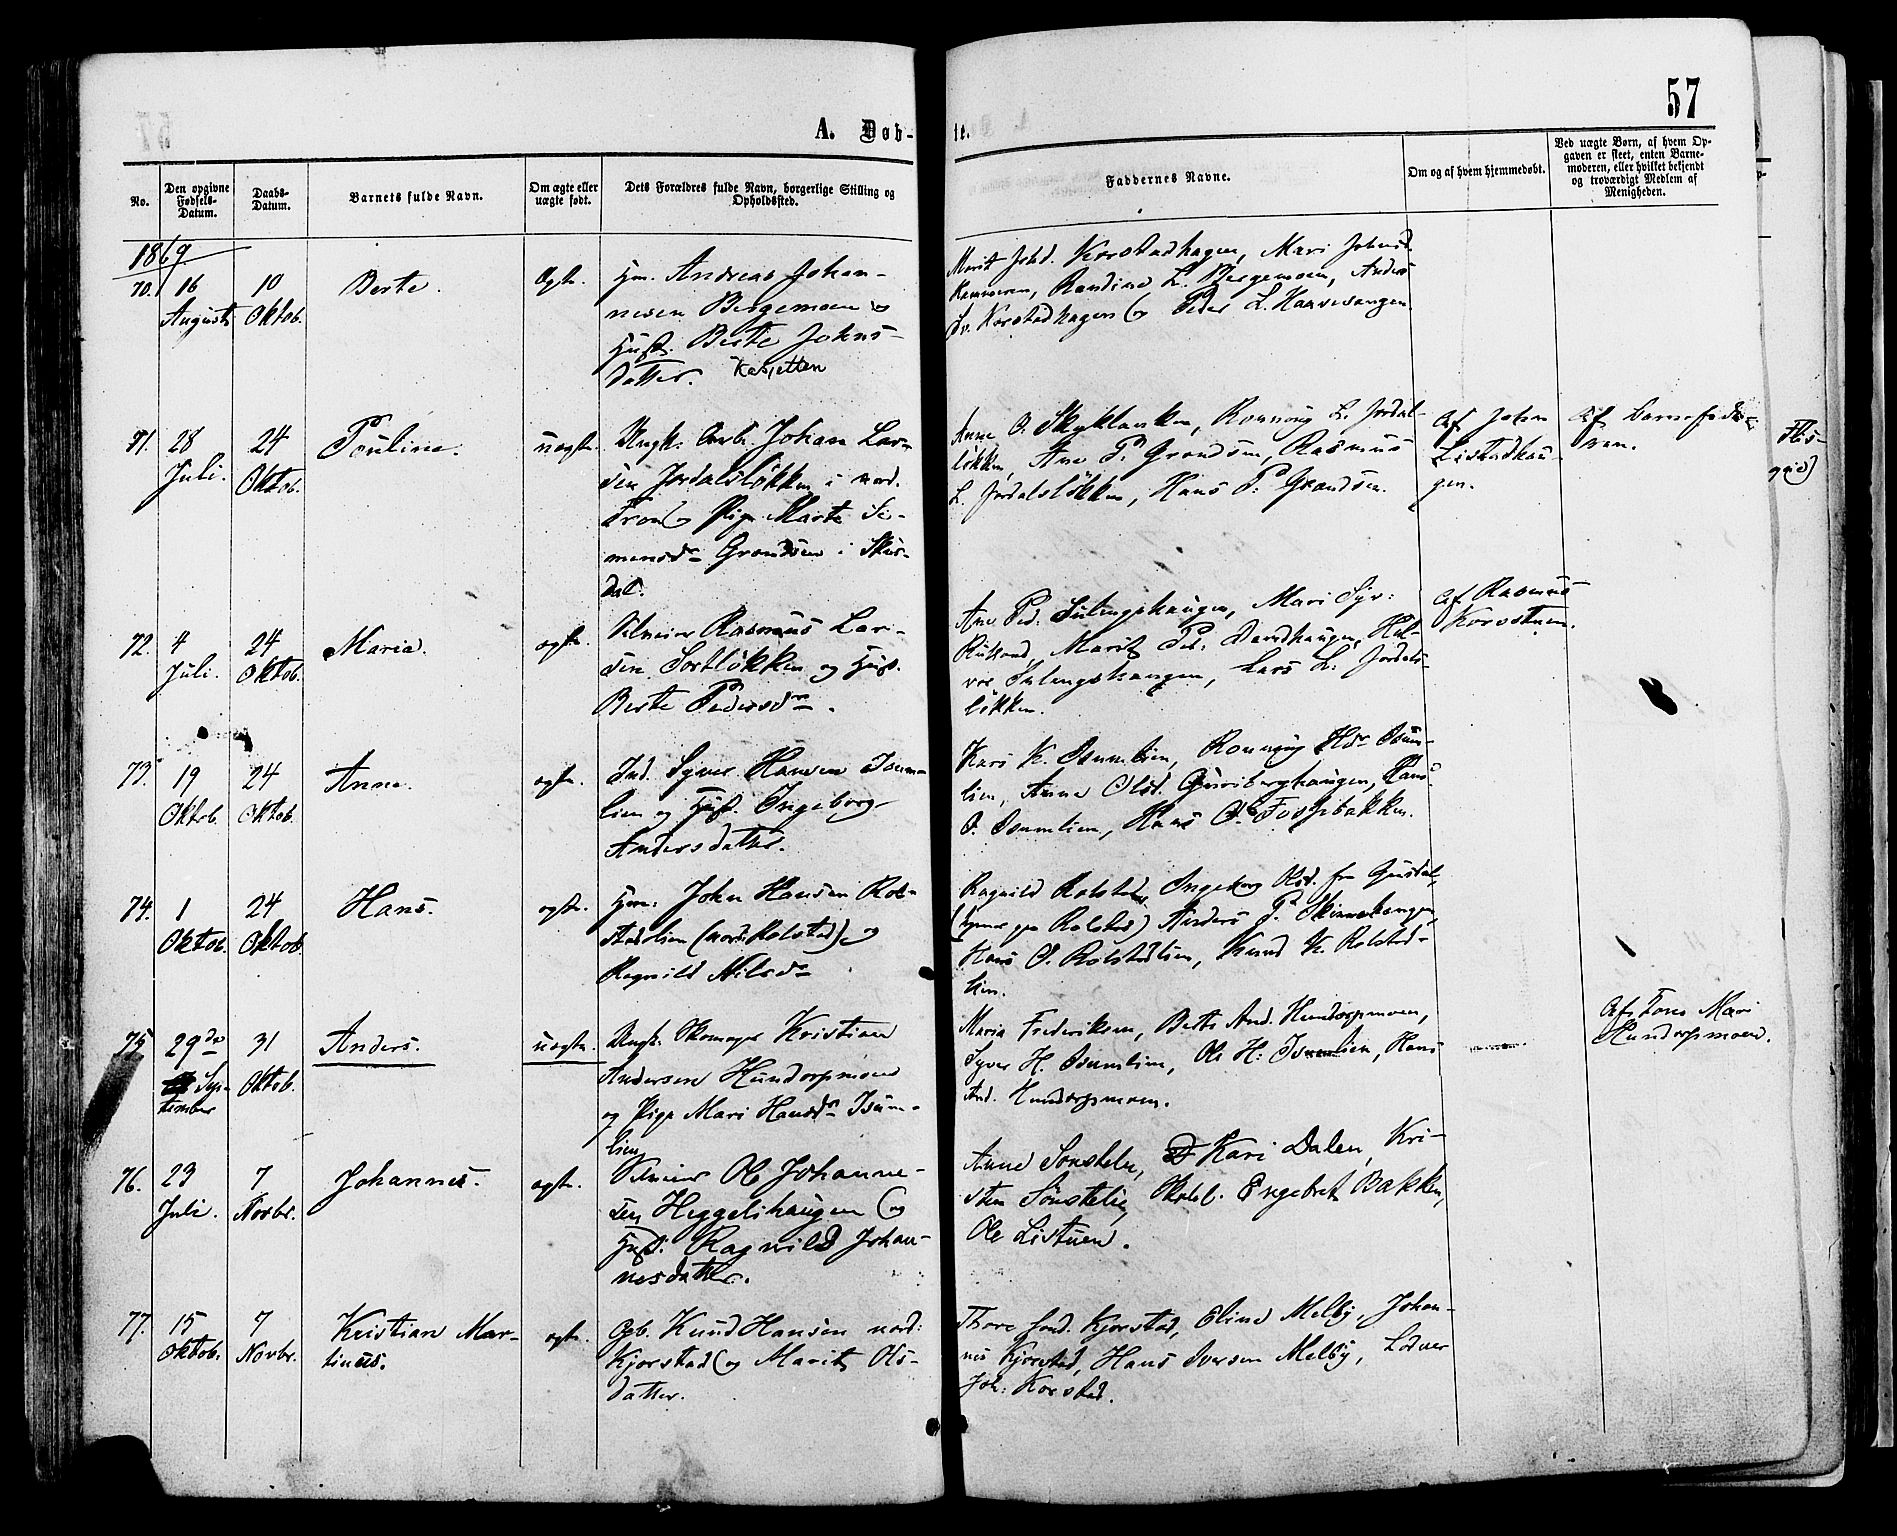 57
A. Døb-
te.
No.
Den opgivne Fødsels-Datum.
Daabs-Datum.
Barnets fulde Navn.
Om ægte eller uægte født.
Dets Forældres fulde Navn, borgerlige Stilling og Opholdssted.
Faddernes Navne.
Om og af hvem hjemmedøbt.
Ved uægte Børn, af hvem Op-
gaven er skeet, enten Barne-
moderen, eller hvilket bekjendt
og troværdigt Medlem af
Menigheden.
1869
70. 16 August 10 Oktob. Berte. Ægte.
Hm. Andreas Johan-
nesen Bergemoen og
Hust. Berte Johns-
datter.
Marit Johd. Korstadhagen, Mari Johnsd.
Randine L. Bergemoen, Anders
Korstadhagen og Peder L. Haavesangen.
71. 28 Juli. 24 Oktob. Pouline. uægte.
Ungk. Arb. Johan Lar-
sen Jordalsløkken i nord.
Fron og Pige Marte Si-
mensdr Grandsen i Skus-
dal.
Anne O. Skyklanken, Ronnoug L. Jordal-
løkken, Ane P. Grandsen, Rasmus
L. Jordalsløkken, Hans P. Grandsen.
Af Johan
Listadhau-
gen.
Af Barnefade-
ren.
72. 4 Juli. 24 Oktob. Maria. ægte.
Selveier Rasmus Lar-
sen Sortløkken og Hust.
Berte Pedersdr.
Ane Ped. Sulengshaugen, Mari Syv:
Marit Ped. Dandhaugen, Hal-
vor Sulengshaugen, Lars L. Jordals-
løkken.
Af Rasmus
Korsstuen.
73. 19 Oktob. 24 Oktob. Anne. ægte.
Ind. Syver Hansen Isum-
lien og Hust. Ingeborg
Andersdatter.
Kari K. Isumlien, Ronnoug Hdr Isum-
lien, Anne Olsd. Guribergshaugen, Hans
O. Isumlien, Hans O. Fossbakken.
74. 1 Oktob. 24 Oktob. Hans. ægte.
Hm. John Hansen Rol-
stadlien (nord. Rolstad) og
Ragnild Nilsdr
Ragnild Rolstad, Ingeborg Olsd. fra Gusdal,
Rolstad) Anders P. Skinnerhaugen,
Hans O. Rolstadlien, Knud K. Rolstad-
lien.
75. 29de September 31 Oktob. Anders. uægte.
Ungk. Skomager Kristian
Andersen Hundorpmoen
og Pige Mari Hansdr Isum-
lien
Maria Frederiksen, Berte And. Hundorpmoen,
Syver H. Isumlien, Ole H. Isumlien, Hans
And. Hundorpmoen.
Af Tone Mari
Hundorpmoen.
76. 23 Juli. 7 Novbr. Johannes. ægte.
Selveier Ole Johanne-
sen Heggelshaugen og
Hust. Ragnild Johan-
nesdatter.
Anne Sønstelie, Kari Dalen, Kri-
sten Sønstelie, Skolel. Engebret Bakken,
Ole Listuen.
77. 15 Oktob. 7 Novbr. Kristian Mar-
tinus. ægte.
Gbr. Knud Hansen nord:
Kjorstad og Marit Ols-
datter.
Thore Kjorstad, Eline Melby, Johan-
nes Kjorstad, Hans Iversen Melby, Lodver
Joh. Korstad.